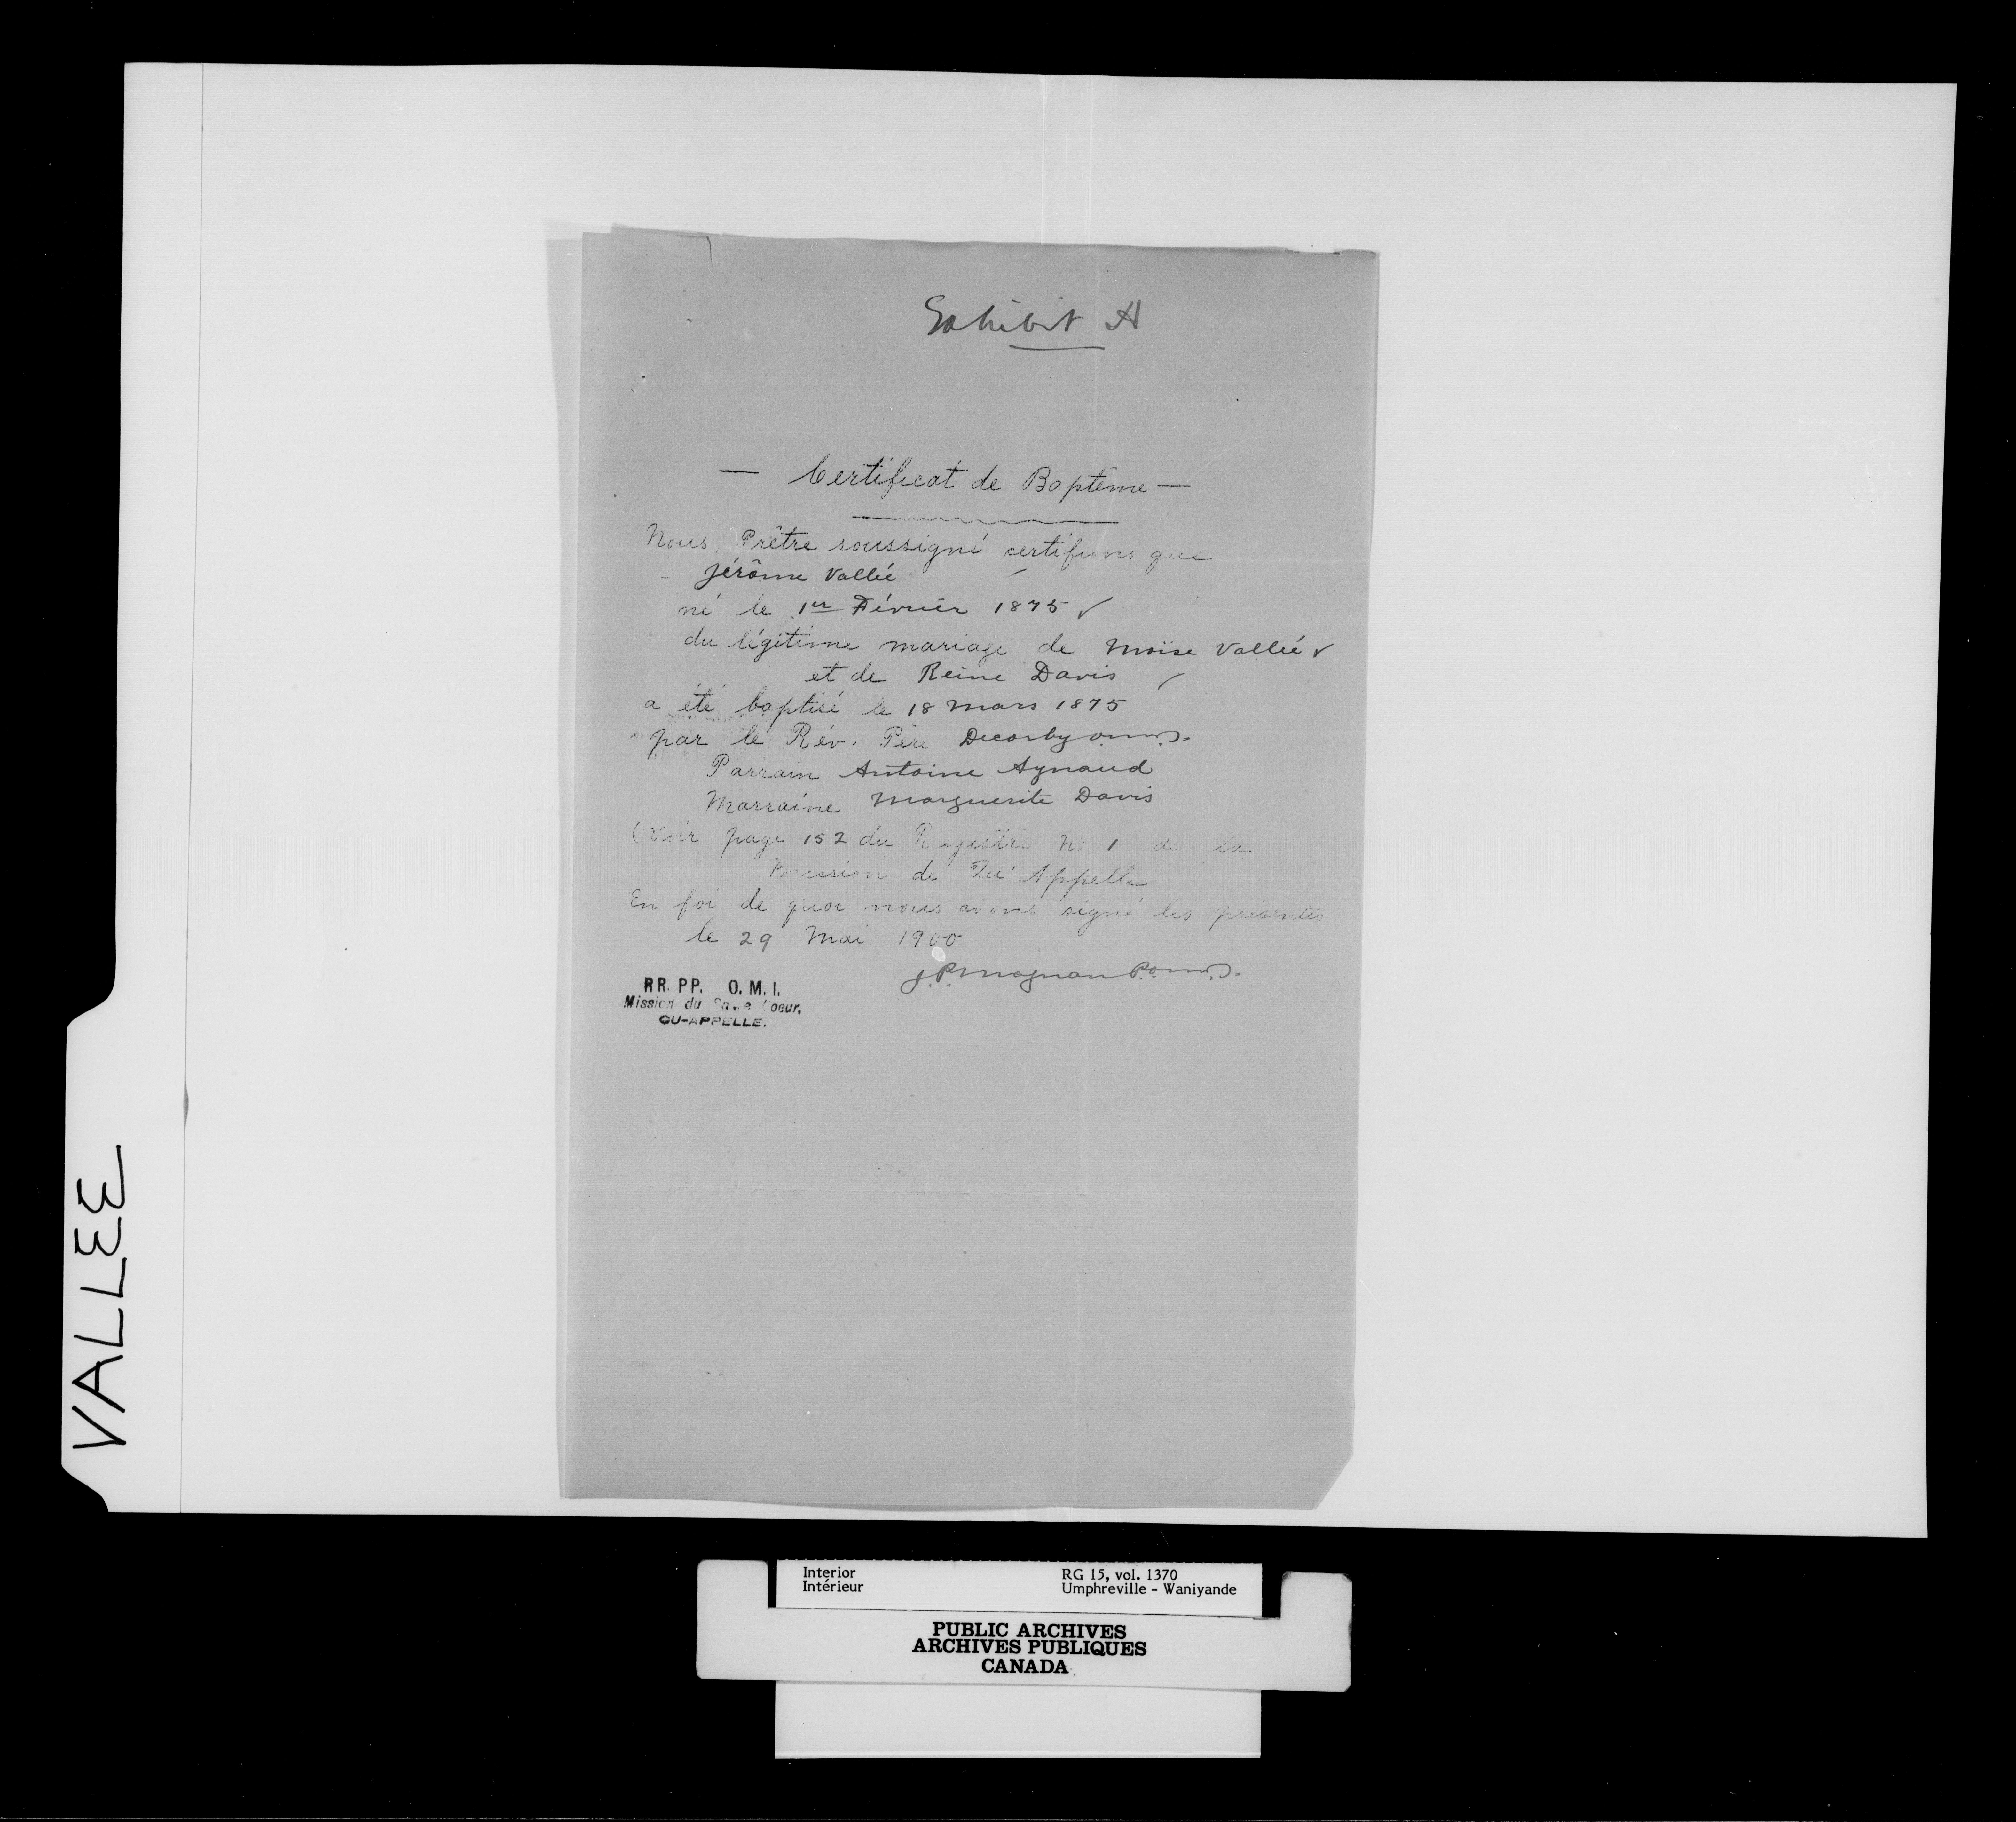 Exhibit A
— Certificat de Baptême —
Nous, Prêtre soussigné certifions que
Jérôme Vallée
né le 1er Février 1875 ✓
du légitime mariage de Moïse Vallée ✓
et de Reine Davis
a été baptisé le 18 Mars 1875
par le Rév. Père Decorby o.m.i.
Parrain Antoine Aynaud
Marraine Marguerite Davis
(Voir page 152 du Régistre No 1 de la
Mission de Qu'Appelle
En foi de quoi nous avons signé les présentes
le 29 Mai 1900
J.P. Magnan P. o.m.i.
RR. PP. O.M.I.
Mission du Coeur,
QU-APPELLE.
VALLEE
Interior
Intérieur
RG 15, vol. 1370
Umphreville - Waniyande
PUBLIC ARCHIVES
ARCHIVES PUBLIQUES
CANADA